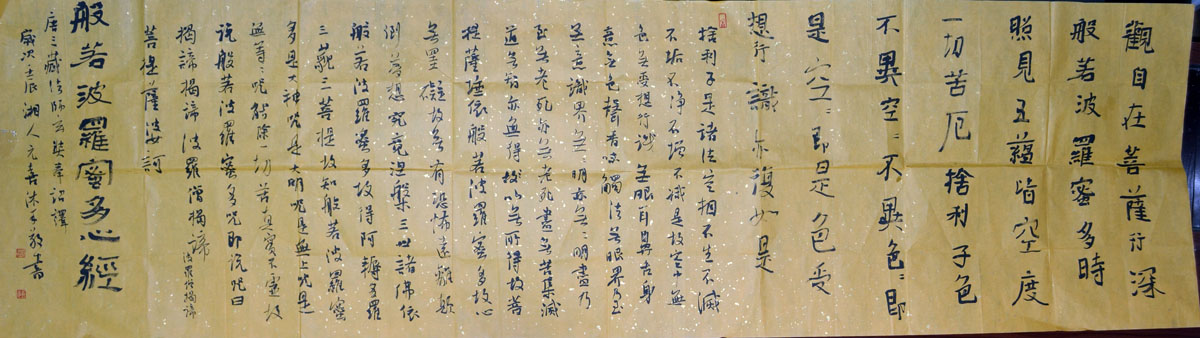 觀自在菩薩行深
般若波羅蜜多時
照見五蘊皆空度
一切苦厄舍利子色
不異空=不異色=即
是空=即是色受
想行識亦復如是
捨利子是諸法空相不生不滅
不垢不净不增不減是故空中無
色无受想行識無眼耳鼻舌身
意无色聲香味觸法无眼界乃至
无意識界无=明亦无=明盡乃
至无老死亦无老死盡无苦集滅
道无智亦無得故以無所得故菩
提薩埵依般若波羅蜜多故心
無罣礙故無有恐怖遠離顛
倒夢想究竟涅槃三世諸佛依
般若波羅蜜多故得阿耨多羅
三藐三菩提故知般若波羅蜜
多是大神咒是大明咒是無上咒是
無等=咒能除一切苦真實不虛故
說般若波羅蜜多咒即說咒曰
揭諦揭諦波羅揭諦波羅僧揭諦
菩提薩婆訶
般若波羅蜜多心經
唐三藏法師玄奘奉詔譯
歲次壬辰湘人元喜沐手敬書